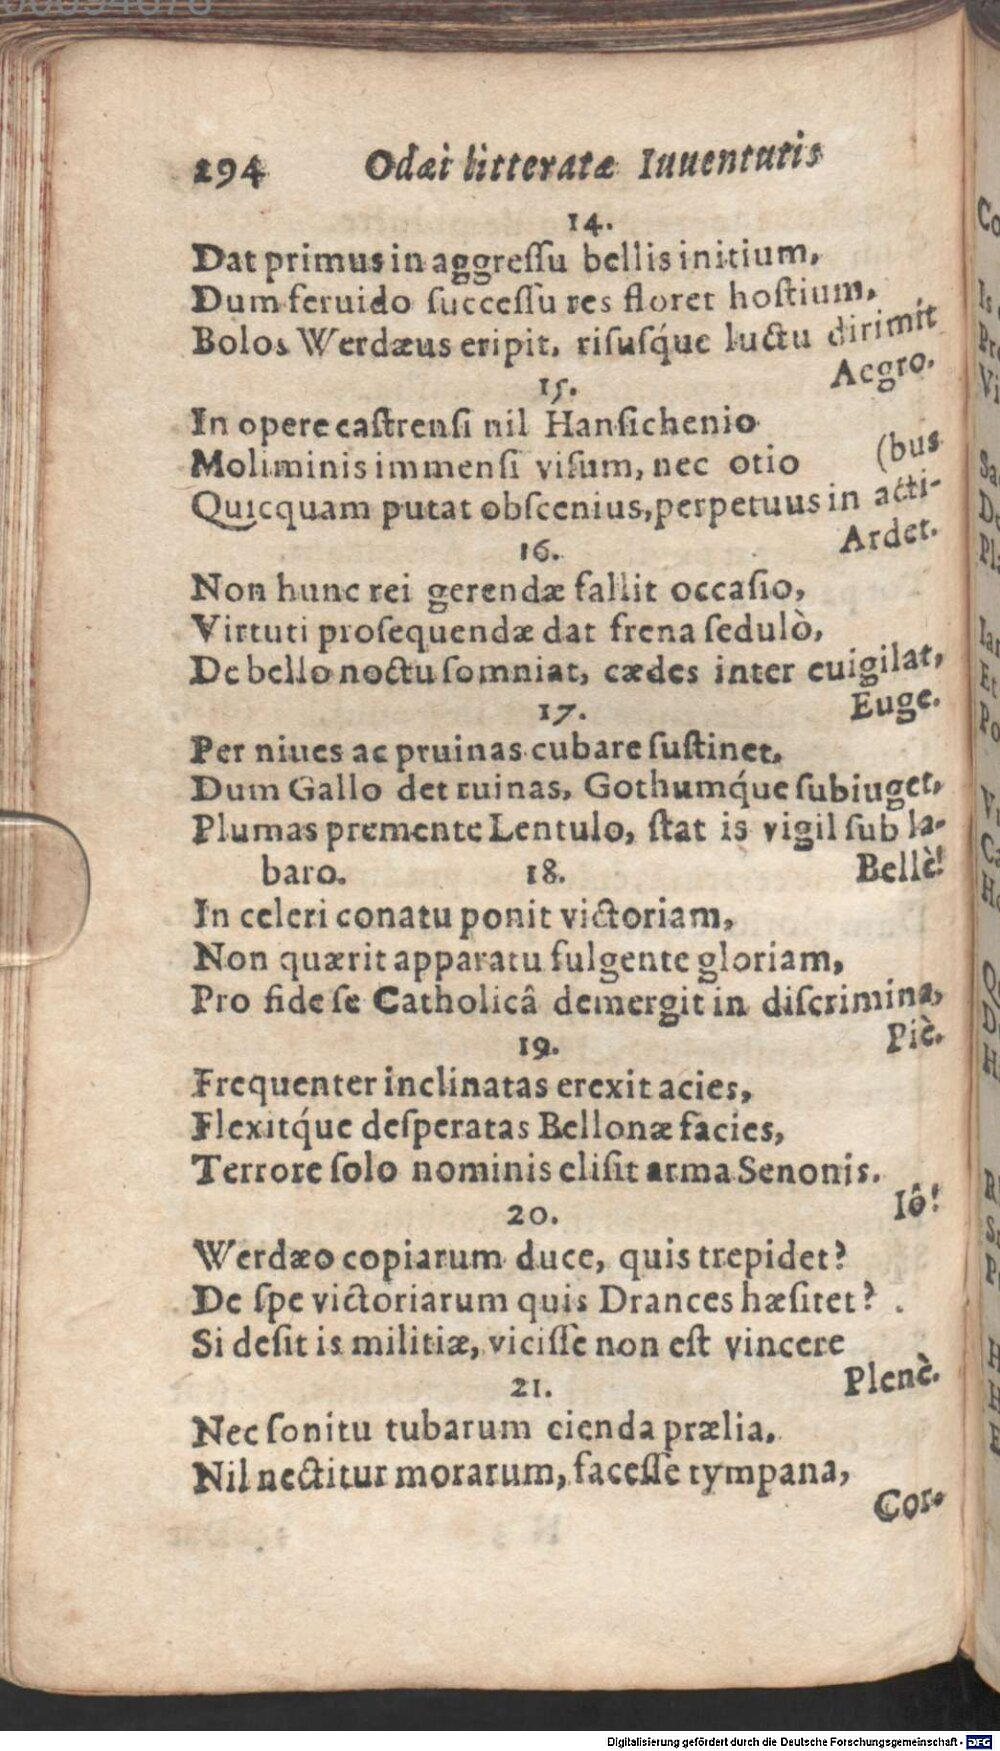 294 Odæi litteratæ Iuuentutis
14.
Dat primus in aggreſſu bellis initium,
Dum feruido ſucceſſu res floret hoſtium,
Bolos Werdæus eripit, riſuſq́ue luctu dirimit
Aegro.
15.
In opere caſtrenſi nil Hanſichenio
Moliminis immenſi viſum, nec otio
(bus
Quicquam putat obſcenius, perpetuus in acti-
Ardet.
16.
Non hunc rei gerendæ fallit occaſio,
Virtuti proſequendæ dat frena ſedulò,
De bello noctu ſomniat, cædes inter euigilat,
Euge.
17.
Per niues ac pruinas cubare ſuſtinet,
Dum Gallo det ruinas, Gothumq́ue ſubiuget,
Plumas premente Lentulo, ſtat is vigil ſub la-
baro. Bellè!
18.
In celeri conatu ponit victoriam,
Non quærit apparatu fulgente gloriam,
Pro fide ſe Catholicâ demergit in diſcrimina,
Piè.
19.
Frequenter inclinatas erexit acies,
Flexitq́ue deſperatas Bellonæ facies,
Terrore ſolo nominis eliſit arma Senonis.
Iô!
20.
Werdæo copiarum duce, quis trepidet?
De ſpe victoriarum quis Drances hæſitet?
Si deſit is militiæ, viciſſe non eſt vincere
Plenè.
21.
Nec ſonitu tubarum cienda prælia,
Nil nectitur morarum, faceſſe tympana,
Cor-
Digitalisierung gefördert durch die Deutsche Forschungsgemeinschaft - DFG